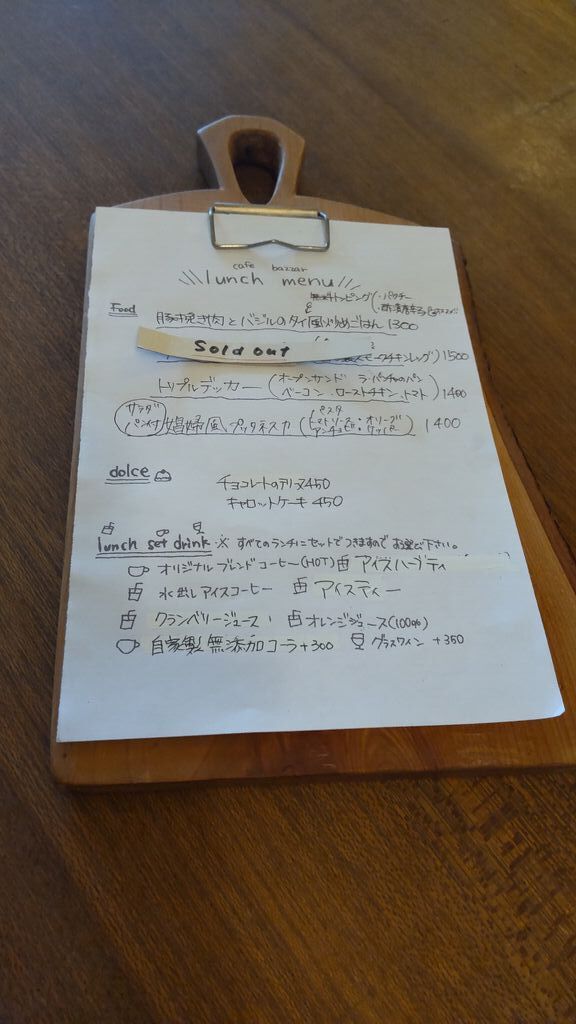 cafe bazzar
lunch menu
無料トッピング(・パクチー
Food
豚挽き肉とバジルのタイ風炒めごはん 1300
Sold out
スモークチキンレッグ) 1500
トリプルデッカー (オープンサンド ラ・パンチャのパン
ベーコン、ローストチキン、トマト) 1400
サラダ
パン付
娼婦風 プッタネスカ (パスタ
トマトソース・オリーブ
アンチョビ・ケッパー) 1400
dolce
チョコレートのテリーヌ 450
キャロットケーキ 450
lunch set drink ※ すべてのランチにセットでつきますので お選び下さい。
オリジナルブレンドコーヒー(HOT) アイスハーブティ
水出しアイスコーヒー アイスティー
クランベリージュース オレンジジュース(100%)
自家製 無添加コーラ+300 グラスワイン +350